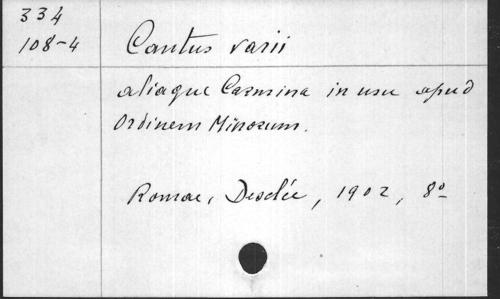 334
108-4
Cantus varii
aliaque Carmina in usu apud
Ordinem Minorum.
Romae, Desclée, 1902, 8º